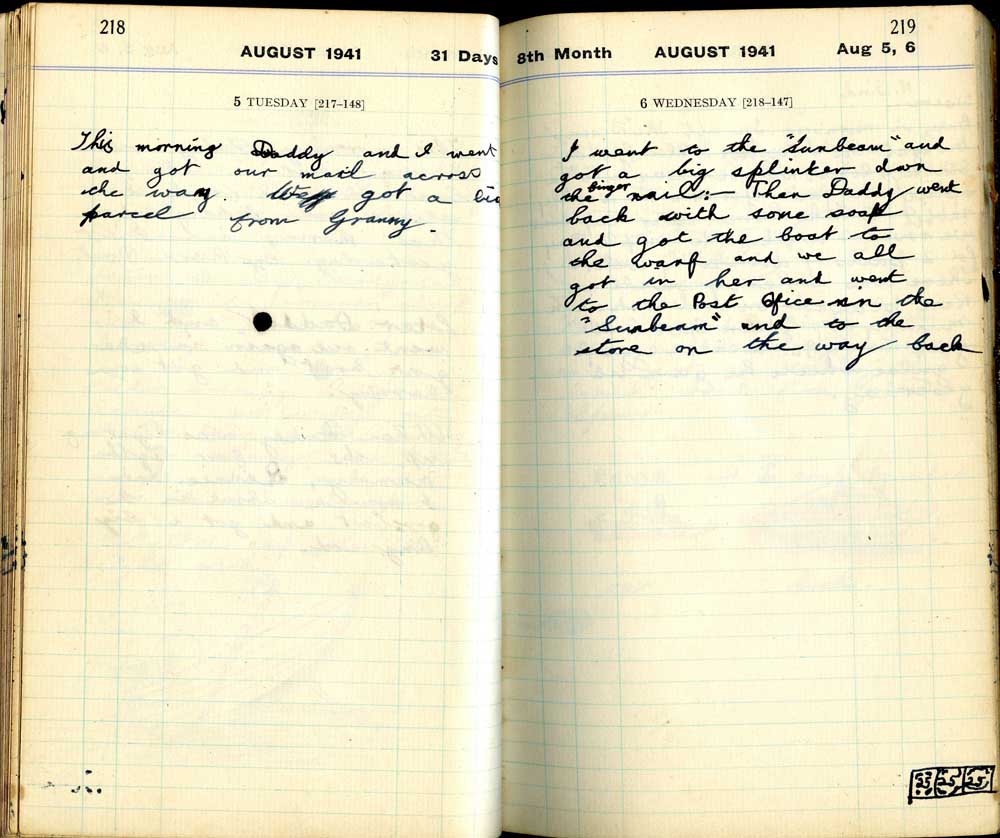 218
AUGUST 1941 31 Days
5 TUESDAY [217–148]
This morning Daddy and I went
and got our mail across
the way. We got a big
parcel from Granny.
219
8th Month AUGUST 1941 Aug 5, 6
6 WEDNESDAY [218–147]
I went to the "Sunbeam" and
got a big splinker down
the finger nail:- Then Daddy went
back with some soap
and got the boat to
the warf and we all
got in her and went
to the Post Office in the
"Sunbeam" and to the
store on the way back
25 25 25